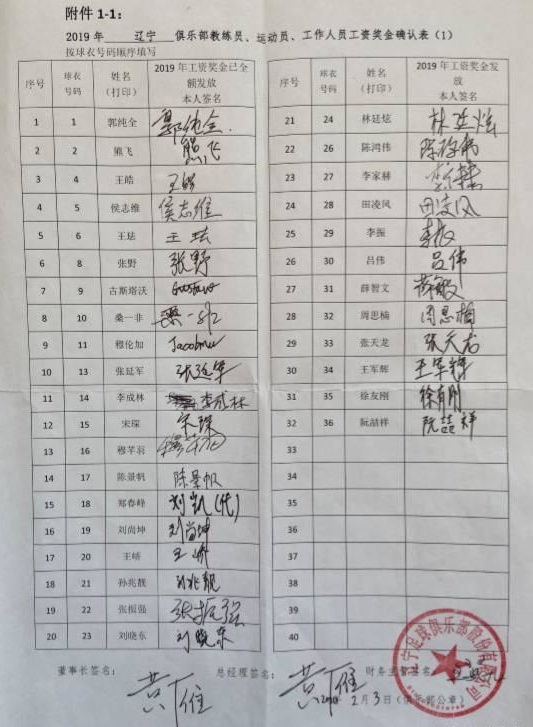 附件 1-1:
2019 年 辽宁 俱乐部教练员、运动员、工作人员工资奖金确认表（1）
按球衣号码顺序填写
序号 球衣号码 姓名（打印） 2019 年工资奖金已全额发放 本人签名
1 1 郭纯全 郭纯全
2 2 熊飞 熊飞
3 4 王皓 王皓
4 5 侯志维 侯志维
5 6 王珐 王珐
6 8 张野 张野
7 9 古斯塔沃 Gustavo
8 10 桑一非 桑一非
9 11 穆伦加
10 13 张延军 张延军
11 14 李成林 李成林
12 15 宋琛 宋琛
13 16 穆芊羽
14 17 陈景帆 陈景帆
15 18 郑春峰 刘凯(代)
16 19 刘尚坤 刘尚坤
17 20 王峤 王峤
18 21 孙兆靓 孙兆靓
19 22 张振强 张振强
20 23 刘晓东 刘晓东
序号 球衣号码 姓名（打印） 2019 年工资奖金发放 本人签名
21 24 林廷炫 林廷炫
22 26 陈鸿伟 陈鸿伟
23 27 李家赫 李家赫
24 28 田凌风 田凌风
25 29 李振 李振
26 30 吕伟 吕伟
27 31 薛智文
28 32 周思楠 周思楠
29 33 张天龙 张天龙
30 34 王军辉 王军辉
31 35 徐友刚 徐有刚
32 36 阮喆祥 阮喆祥
33
34
35
36
37
38
39
40
董事长签名： 黄雁 总经理签名： 黄雁 财务主管签名：
2 月 3 日（俱乐部公章）
辽宁足球俱乐部股份有限公司